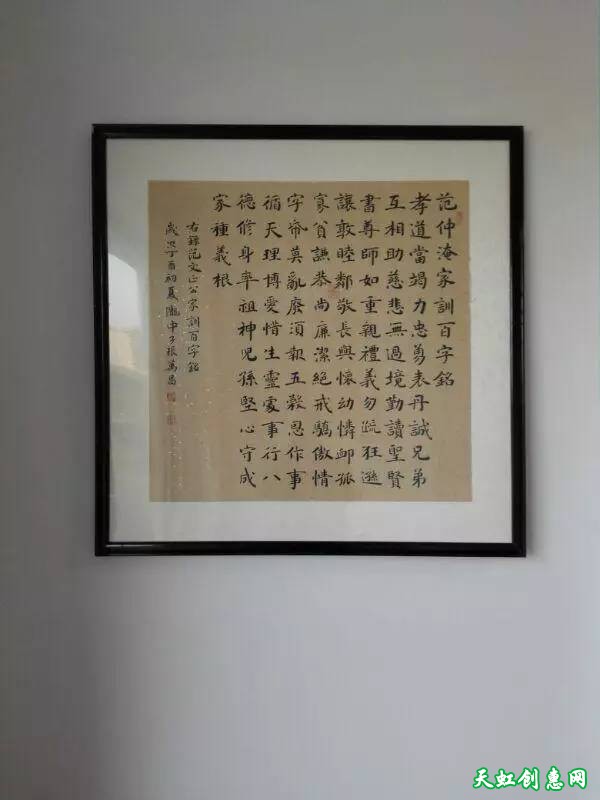 范仲淹家訓百字銘
孝道當竭力忠勇表丹誠兄弟
互相助慈悲無過境勤讀聖賢
書尊師如重親禮義勿疏狂遜
讓敦睦鄰敬長與懷幼憐卹孤
寡貧謙恭尚廉潔絕戒驕傲情
字帋莫亂廢須報五穀恩作事
循天理博愛惜生靈處事行八
德修身率祖神児孫堅心守成
家種義根
右錄范文正公家訓百字銘
歲次丁酉初夏隴中子張萬昌
天虹创惠网